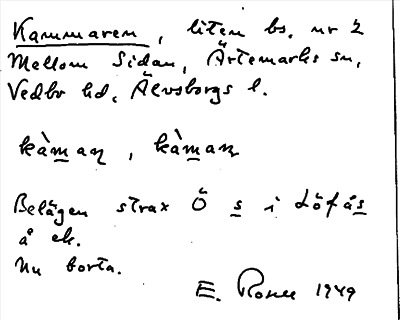 Kammaren, liten bs. nr 2
Mellom Sidan, Ärtemarks sn,
Vedbo hd, Älvsborgs l.
kàmaɳ, kàmaɳ
Belägen strax Ö s i Löfås
å ek.
Nu borta.
E. Rosell 1949